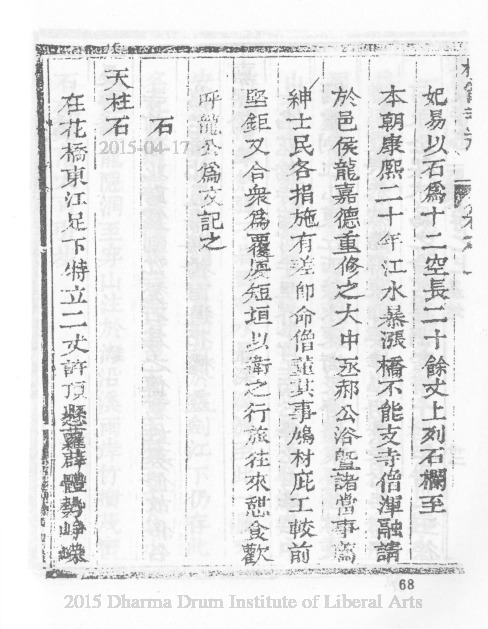 妃易以石為十二空長二十餘丈上列石欄至
本朝康熙二十年江水暴漲橋不能支寺僧渾融請
於邑侯龍嘉德重修之大中丞郝公浴暨諸當事薦
紳士民各捐施有差師命僧董其事鳩材庀工較前
堅鉅又合衆為覆廈短垣以衛之行旅往來憩食歡
呼龍公為文記之
石
天柱石
在花橋東江足下特立二丈許頂懸蘿薜體勢崢嶸
2015-04-17
68
2015 Dharma Drum Institute of Liberal Arts